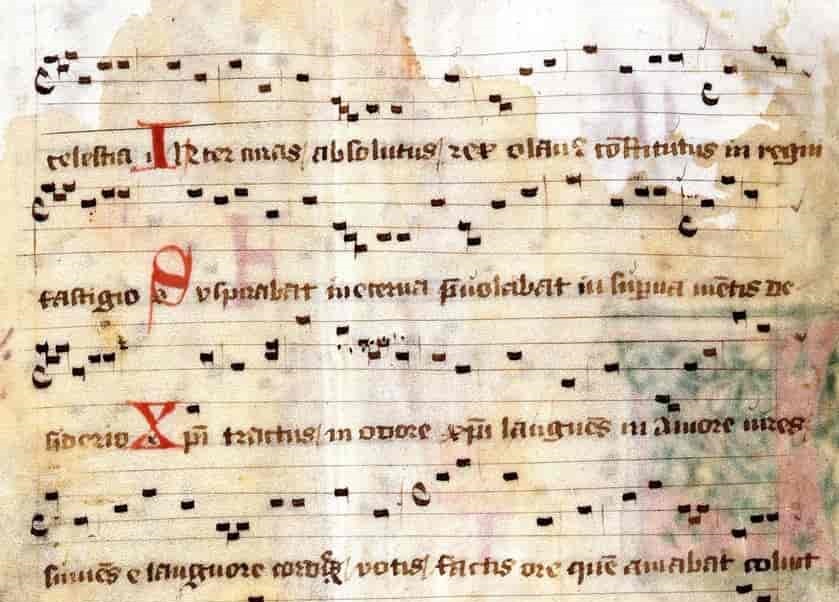 celestia INter curas absolutus rex olauꝰ cōstitutus in regni
fastigio Suspirabat in eterna p̄uolabat in sup̄na mētis de
siderio Xp̄i tractus in odore xp̄i languēs in amore uires
sumēs e languore cordis votis factis ore quē amabat coluit